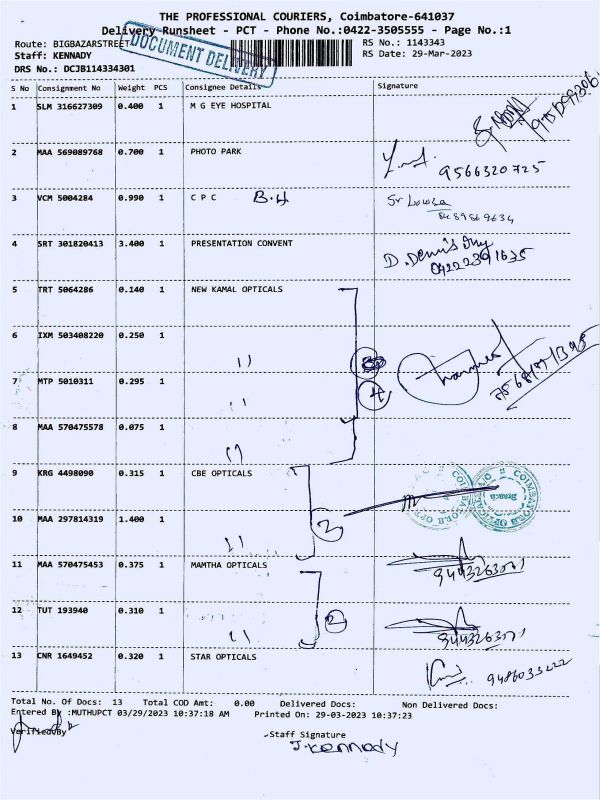 THE PROFESSIONAL COURIERS, Coimbatore-641037
Delivery Runsheet - PCT - Phone No.:0422-3505555 - Page No.:1
Route: BIGBAZARSTREET RS No.: 1143343
DOCUMENT DELIVERY
Staff: KENNADY RS Date: 29-Mar-2023
DRS No.: DCJB114334301
S No Consignment No Weight PCS Consignee Details Signature
1 SLM 316627309 0.400 1 M G EYE HOSPITAL
2 MAA 569089768 0.700 1 PHOTO PARK
9566320725
3 VCM 5004284 0.990 1 C P C B.H Sr Lowsa
8489569634
4 SRT 301820413 3.400 1 PRESENTATION CONVENT
D. Dennis
04222391635
5 TRT 5064286 0.140 1 NEW KAMAL OPTICALS
6 IXM 503408220 0.250 1 "
7 MTP 5010311 0.295 1 " 4
8 MAA 570475578 0.075 1 "
9 KRG 4498090 0.315 1 CBE OPTICALS
COIMBATORE OPTICALS
Branch
10 MAA 297814319 1.400 1 " 2
11 MAA 570475453 0.375 1 MAMTHA OPTICALS
9443263071
12 TUT 193940 0.310 1 " 2
9443263071
13 CNR 1649452 0.320 1 STAR OPTICALS
9486033222
Total No. Of Docs: 13 Total COD Amt: 0.00 Delivered Docs: Non Delivered Docs:
Entered By :MUTHUPCT 03/29/2023 10:37:18 AM Printed On: 29-03-2023 10:37:23
VerifiedBy
Staff Signature
J. Kennady